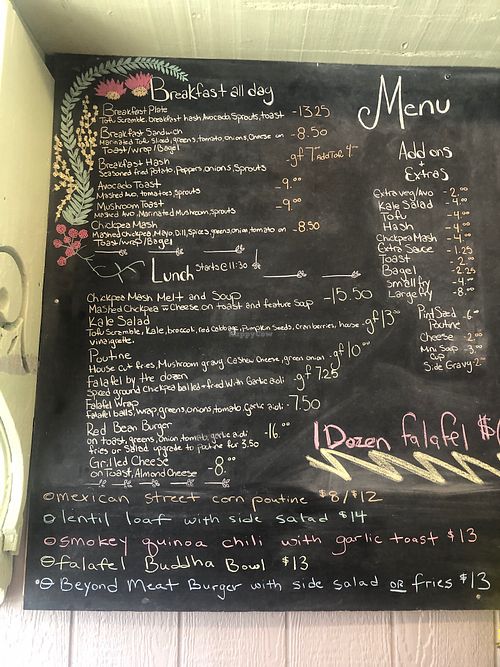 Breakfast all day
Breakfast Plate -13.25
Tofu Scramble, breakfast hash, Avocado, Sprouts, toast
Breakfast Sandwich -8.50
Marinated Tofu Sliced, greens, tomato, onions, Cheese on
Toast/wrap/Bagel
Breakfast Hash -gf 7 Add Tofu 4
Seasoned fried Potato, Peppers, onions, Sprouts
Avocado Toast -9.00
Mashed Avo, tomatoes, sprouts
Mushroom Toast -9.00
Mashed Avo, Marinated Mushroom, sprouts
Chickpea Mash -8.50
Mashed Chickpea, Mayo, Dill, Spices greens, onion, tomato on
Toast/wrap/Bagel
Lunch Starts @ 11:30
Chickpea Mash Melt and Soup -15.50
Mashed Chickpea w Cheese on toast and feature Soup
Kale Salad -gf 13.00
Tofu Scramble, Kale, broccoli, red Cabbage, Pumpkin Seeds, Cranberries, house
vinaigrette.
Poutine -gf 10.00
House cut fries, Mushroom gravy Cashew Cheese, green onion
Falafel by the dozen -gf 7.25
Spiced ground Chickpea balled + fried with Garlic aioli
Falafel Wrap -7.50
falafel balls, wrap, greens, onions, tomato, garlic aioli
Red Bean Burger -16.00
on toast, greens, onion, tomato, garlic aioli
fries or Salad upgrade to poutine for 3.50
Grilled Cheese -8.00
on Toast, Almond Cheese
Menu
Add ons
+
Extras
Extra veg/Avo -2.00
Kale Salad -4.00
Tofu -4.00
Hash -4.00
Chickpea Mash -4.00
Extra Sauce -1.25
Toast -2.00
Bagel -2.25
Small fry -4.00
Large fry -8.00
Poutine -6.00
Cheese -2.00
Mini Soup -3.00
Cup
Side Gravy -2.00
1 Dozen falafel $
o mexican street corn poutine $8/$12
o lentil loaf with side salad $14
o smokey quinoa chili with garlic toast $13
o falafel Buddha Bowl $13
o Beyond Meat Burger with side salad OR fries $13
HappyCow